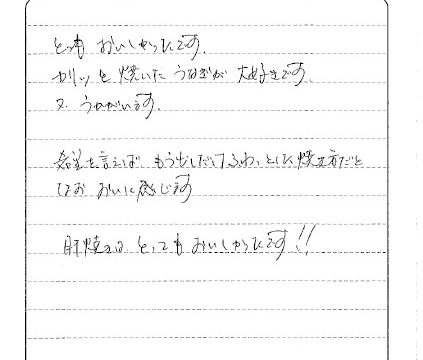 とってもおいしかったです。
カリッと焼いたうなぎが大好きです。
又、うかがいます。
希望を言えば、もう少しだけふわっとした焼き方だと
なお おいしく感じます
肝焼きは とってもおいしかったです!!